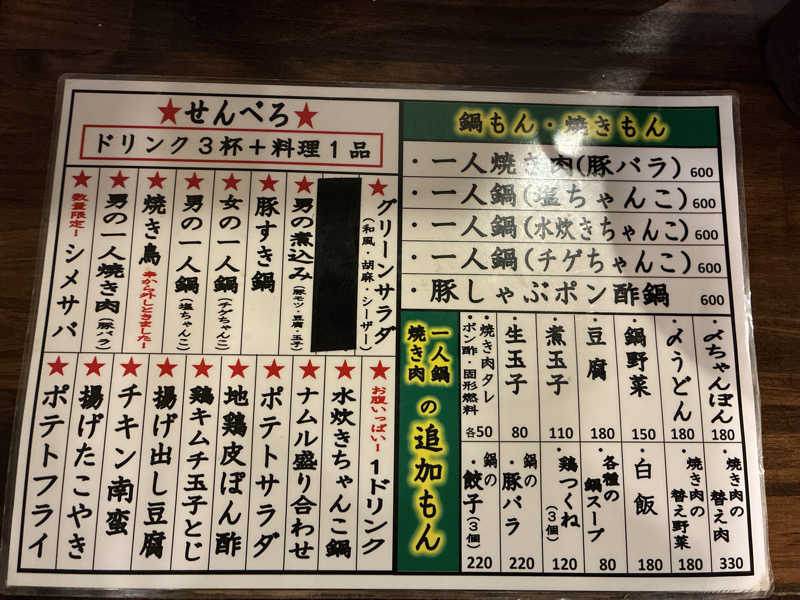 ★せんべろ★
ドリンク3杯+料理1品
★グリーンサラダ
(和風・胡麻・シーザー)
★男の煮込み
(豚モツ・豆腐・玉子)
★豚すき鍋
★女の一人鍋
(チゲちゃんこ)
★男の一人鍋
(塩ちゃんこ)
★焼き鳥
串から外しときました!
★男の一人焼き肉
(豚バラ)
★数量限定!
シメサバ
★お腹いっぱい!
1ドリンク
★水炊きちゃんこ鍋
★ナムル盛り合わせ
★ポテトサラダ
★地鶏皮ぽん酢
★鶏キムチ玉子とじ
★揚げ出し豆腐
★チキン南蛮
★揚げたこやき
★ポテトフライ
鍋もん・焼きもん
・一人焼き肉(豚バラ) 600
・一人鍋(塩ちゃんこ) 600
・一人鍋(水炊きちゃんこ) 600
・一人鍋(チゲちゃんこ) 600
・豚しゃぶポン酢鍋 600
一人鍋
焼き肉
の追加もん
・〆ちゃんぽん 180
・〆うどん 180
・鍋野菜 150
・豆腐 180
・煮玉子 110
・生玉子 80
・焼き肉タレ
・ポン酢・固形燃料 各50
・焼き肉の
替え肉 330
・焼き肉の
替え野菜 180
・白飯 180
・各種の
鍋スープ 80
・鶏つくね
(3個) 120
・鍋の
豚バラ 220
・鍋の
餃子(3個) 220